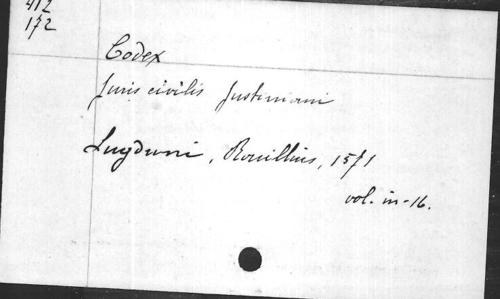 412
172
Codex
Juris civilis Justiniani
Lugduni, Rouillius, 1571
vol. in-16.